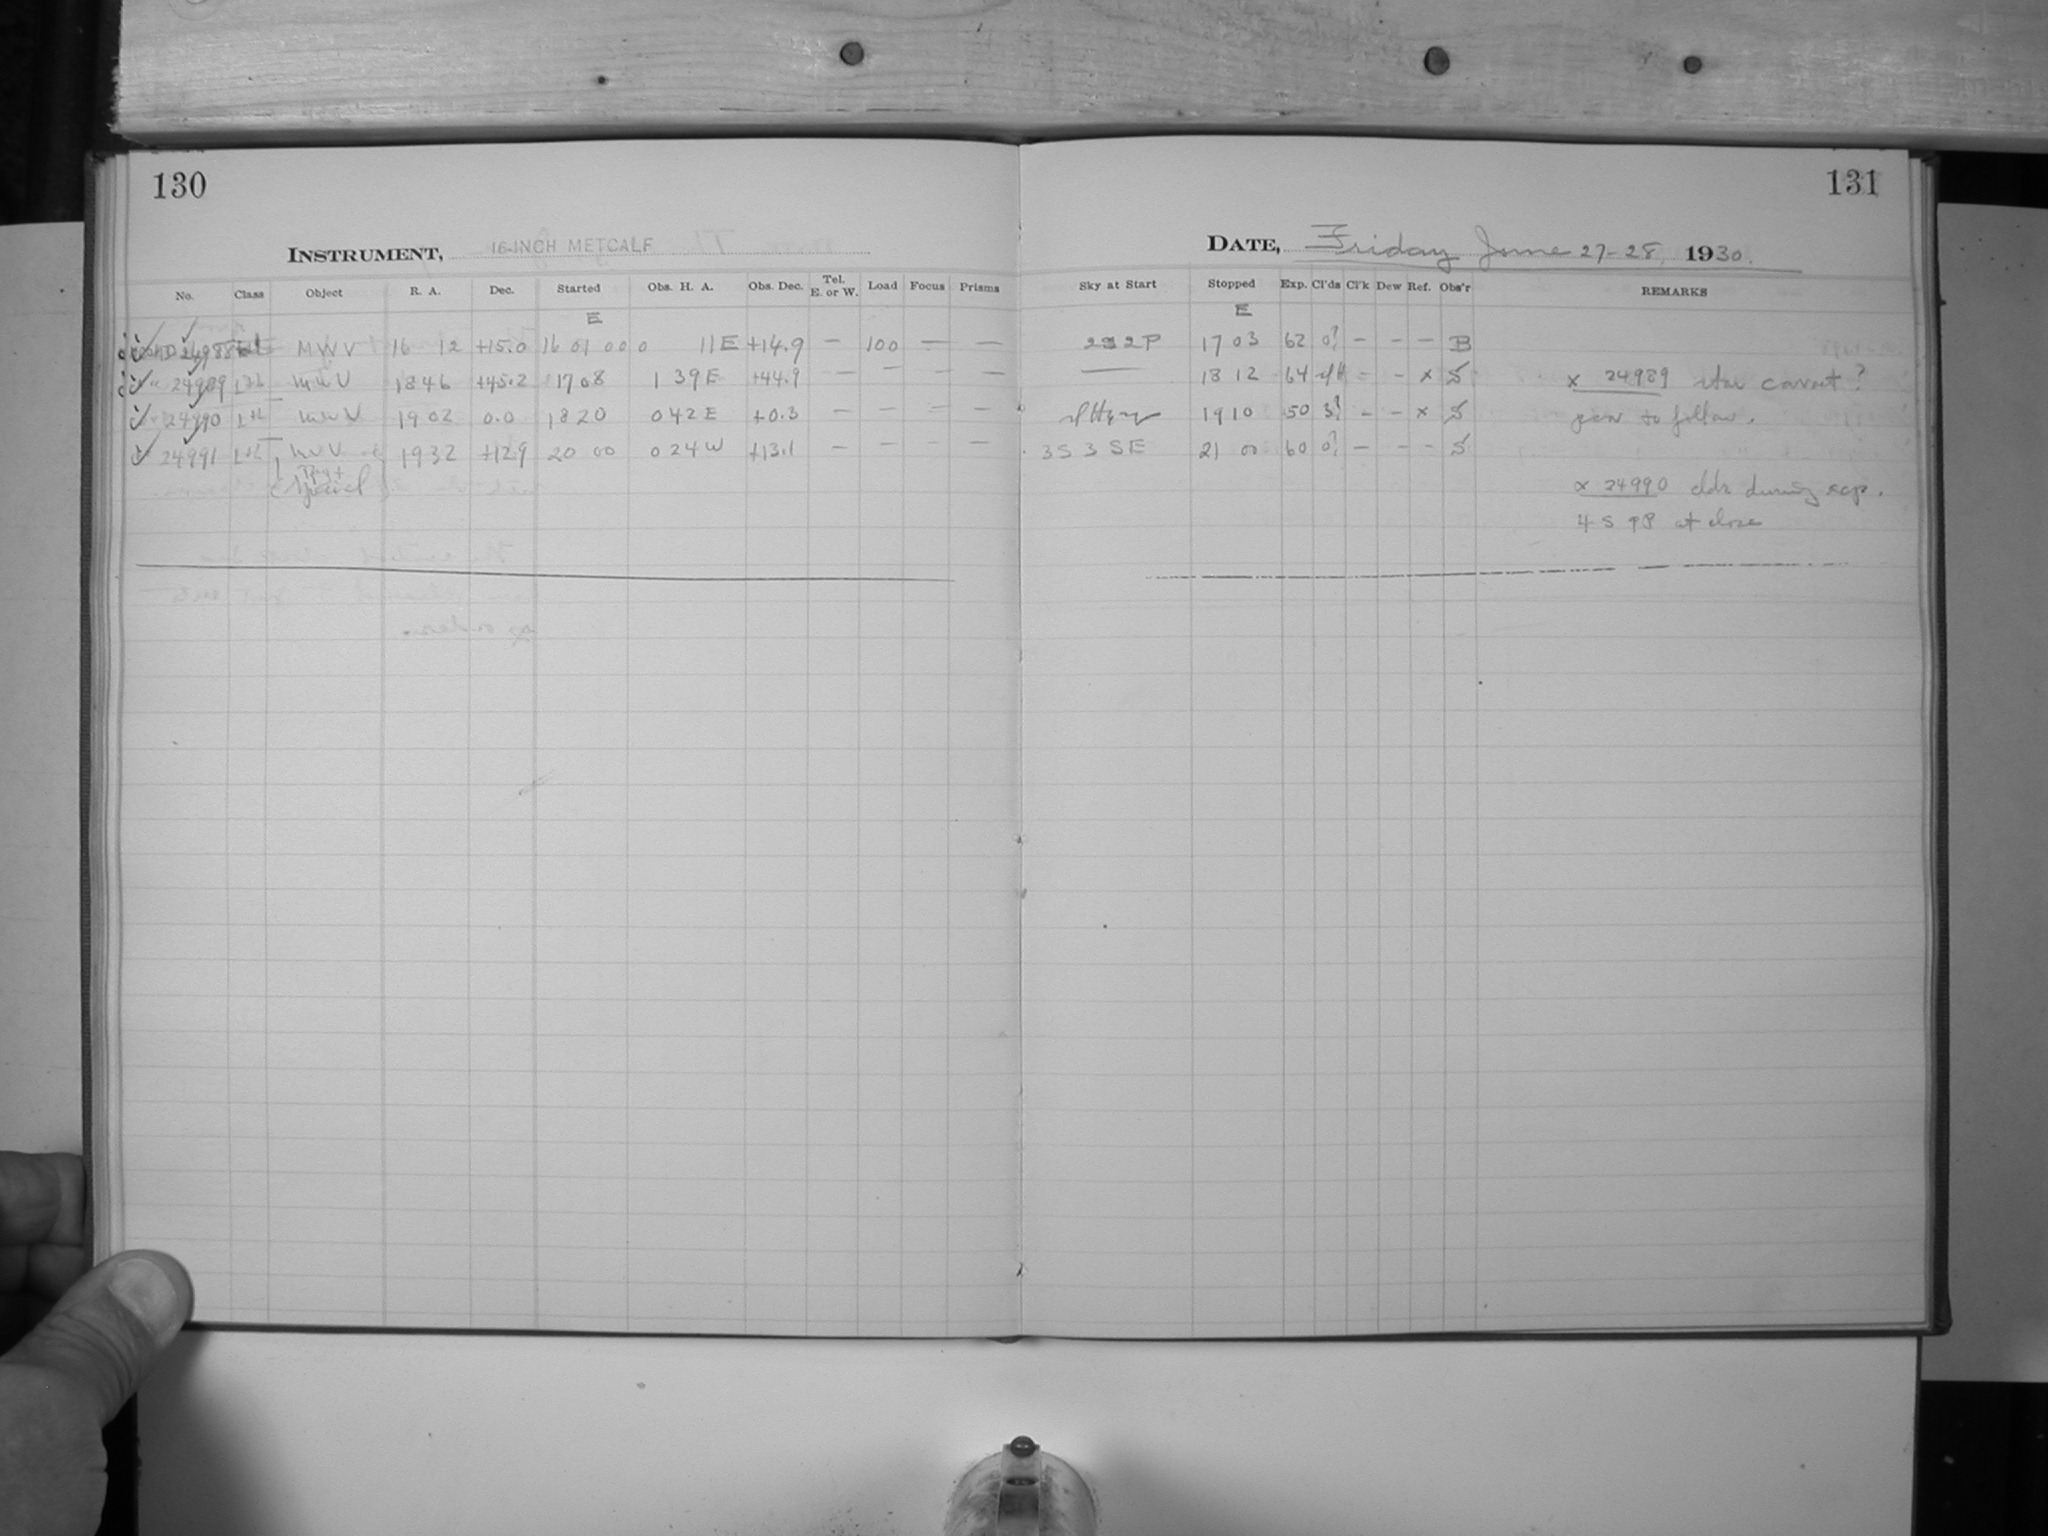 130
131
INSTRUMENT, 16-INCH METCALF
DATE, Friday June 27-28, 1930.
No. Class Object R. A. Dec. Started Obs. H. A. Obs. Dec. Tel. E. or W. Load Focus Prisms Sky at Start Stopped Exp. Cl'ds Cl'k Dew Ref. Obs'r REMARKS
E E
24988 MWV 16 12 +15.0 16 01 00 0 11E +14.9 — 100 — — 2P 17 03 62 0? — — — B
24989 MWV 18 46 +45.2 17 08 1 39E +44.9 — — — — — 18 12 64 - - x S x 24989 star correct?
24990 MWV 19 02 0.0 18 20 0 42E +0.3 — — — — 19 10 50 3? — — x S to follow.
24991 MWV 19 32 +12.9 20 00 0 24W +13.1 — — — — 3S 3 SE 21 00 60 0? — — — S
x 24990 clds during exp.
4 S PP at close